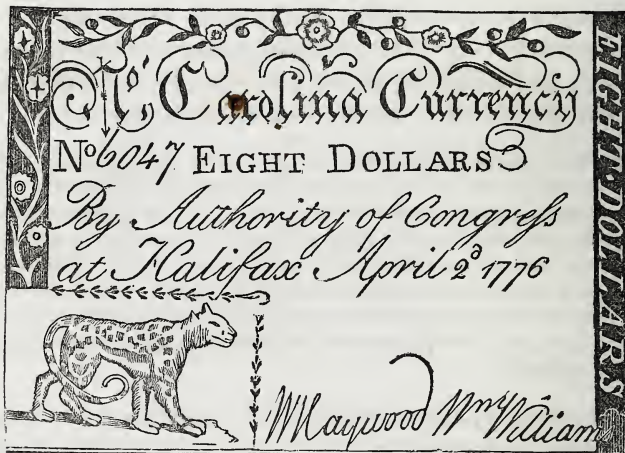 No. Carolina Currency
No 6047 EIGHT DOLLARS
By Authority of Congreſs
at Halifax April 2d 1776
WHaywood Wm Williams
EIGHT·DOLLARS